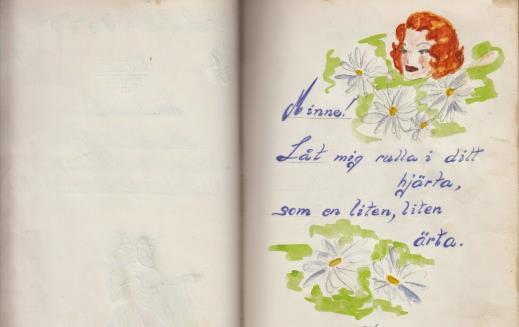 Minne!
Låt mig rulla i ditt
hjärta,
som en liten, liten
ärta.